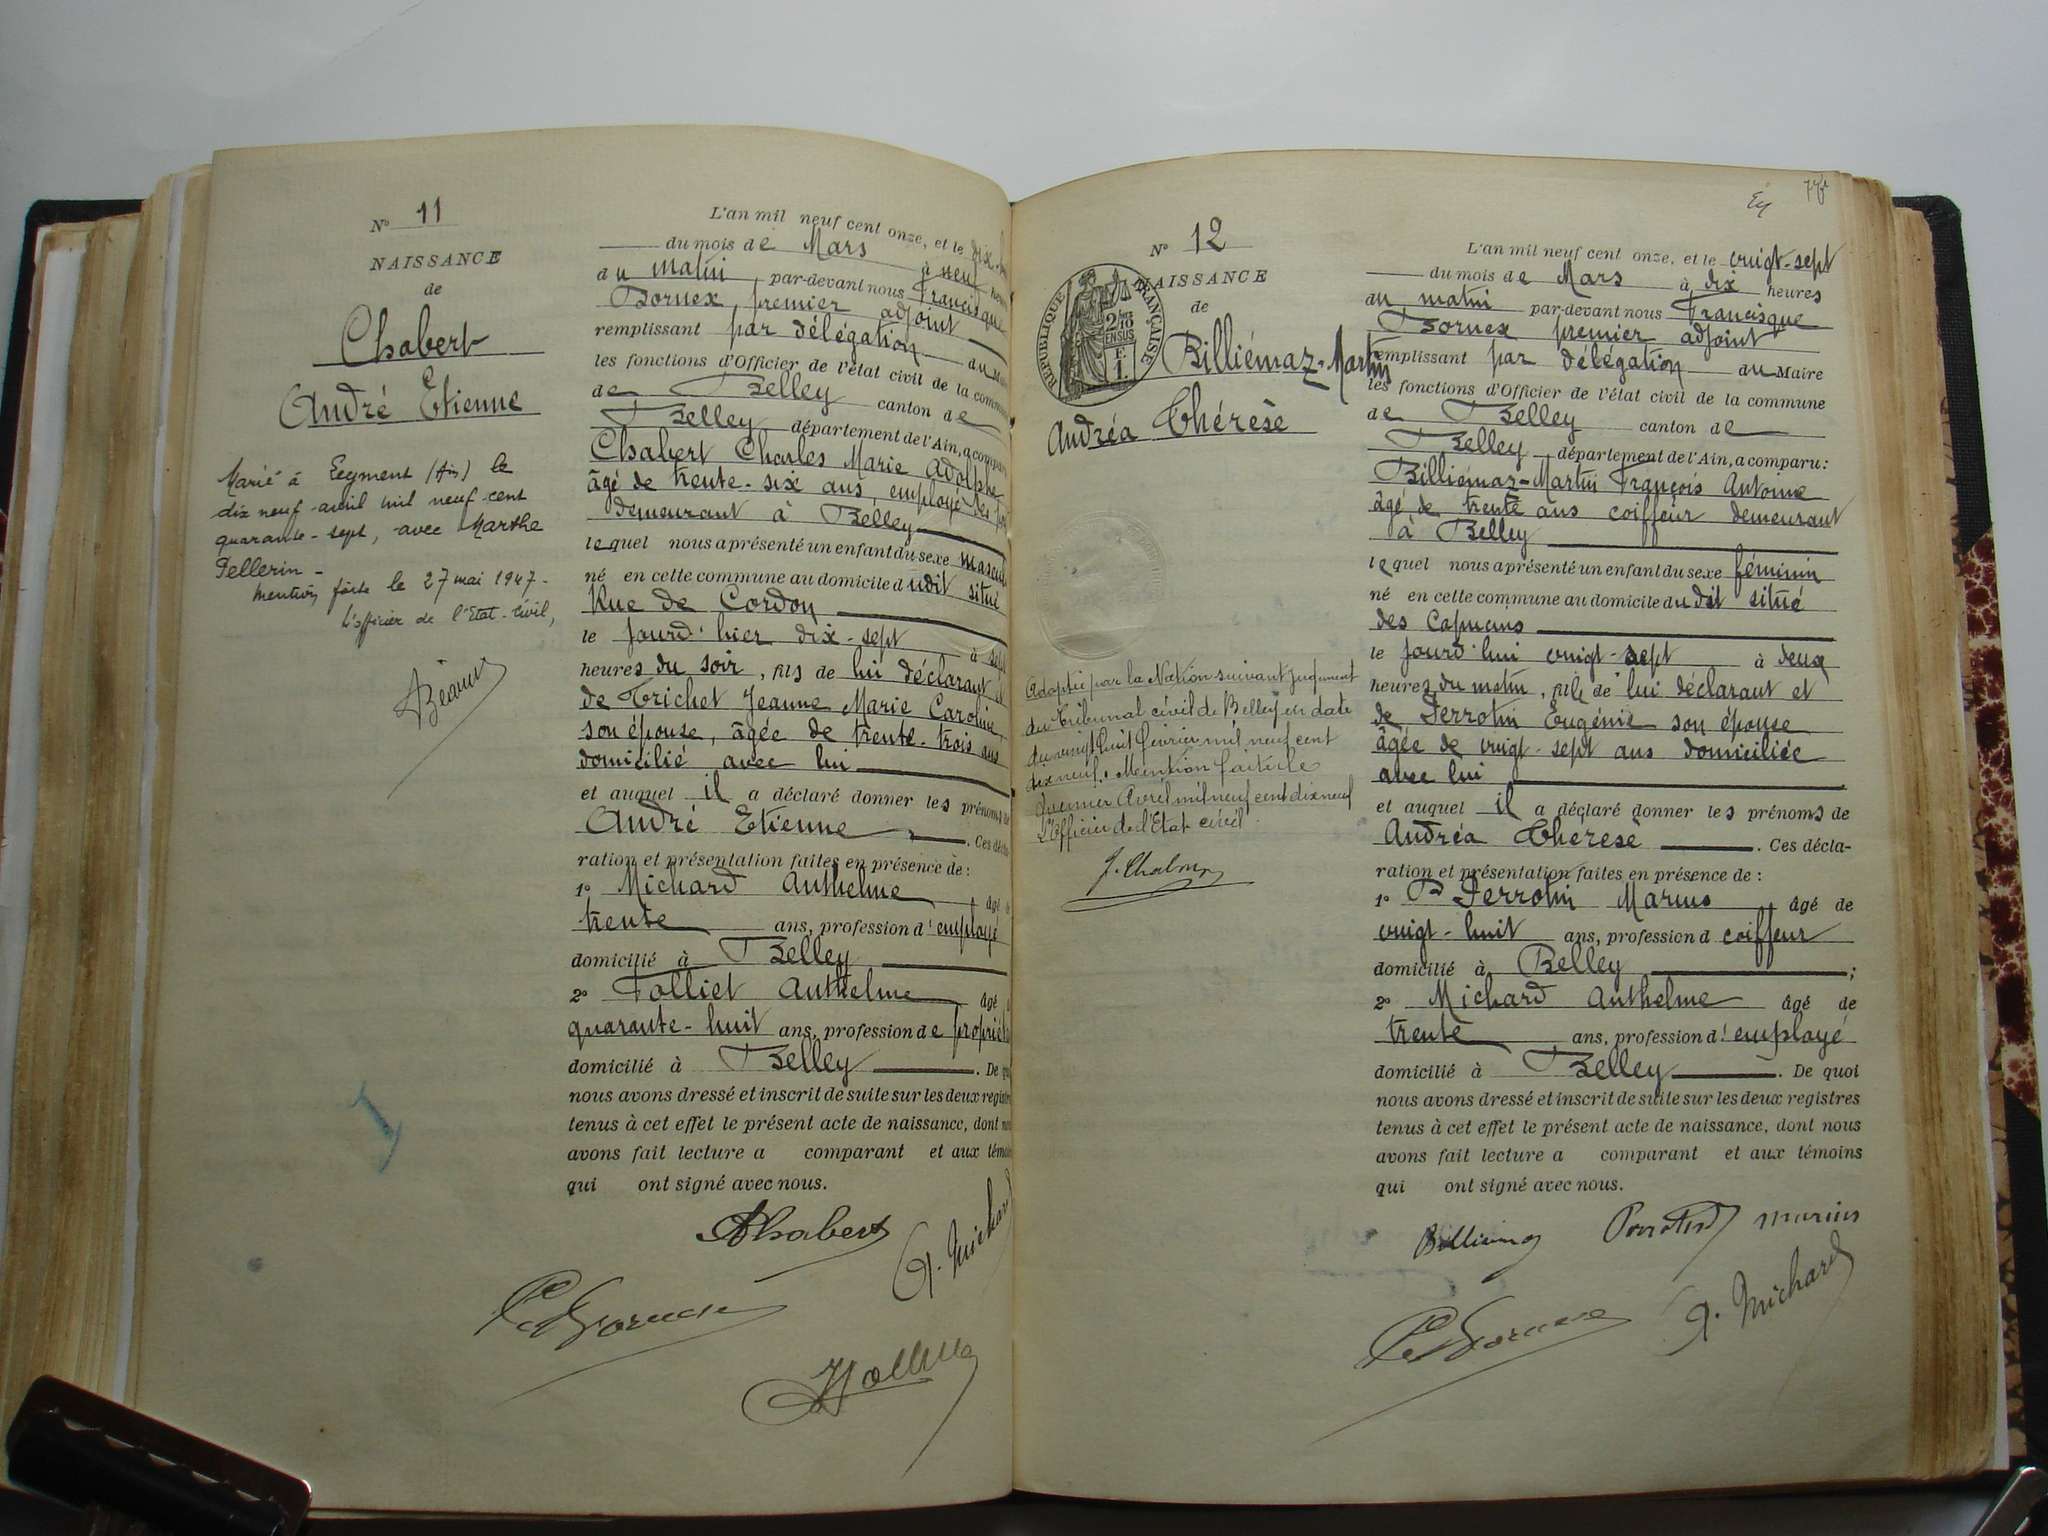 N° 11
NAISSANCE
de
Chabert
André Etienne
Marié à Ceyment (Ain) le
dix neuf avril mil neuf cent
quarante-sept, avec Marthe
Pellerin -
Mention faite le 27 mai 1947 -
L'officier de l'Etat-Civil,
L'an mil neuf cent onze, et le dix-
du mois de Mars à neuf heures
du matin par-devant nous Francisque
Bornex premier adjoint
remplissant par délégation du Maire
les fonctions d'Officier de l'état civil de la commune
de Belley canton de
Belley département de l'Ain, a comparu
Chabert Charles Marie Adolphe
âgé de trente-six ans, employé des
demeurant à Belley
lequel nous a présenté un enfant du sexe mascul
né en cette commune au domicile dudit situé
Rue de Cordon
le jourd'hier dix-sept à sept
heures du soir, fils de lui déclarant et
de Trichet Jeanne Marie Caroline,
son épouse, âgée de trente-trois ans
domicilié avec lui
et auquel il a déclaré donner les prénoms de
André Etienne. Ces décla-
ration et présentation faites en présence de :
1° Michard Anthelme, âgé de
trente ans, profession d'employé
domicilié à Belley
2° Folliet Anthelme âgé de
quarante-huit ans, profession de propriét
domicilié à Belley. De quoi
nous avons dressé et inscrit de suite sur les deux registres
tenus à cet effet le présent acte de naissance, dont nous
avons fait lecture a comparant et aux témoins
qui ont signé avec nous.
AChabert
A. Michard
N° 12
NAISSANCE
de
REPUBLIQUE FRANÇAISE
2/10
EN SUS
F.
1.
Billiémaz-Martin
Andréa Thérèse
Adoptée par la Nation suivant jugement
du Tribunal civil de Belley en date
du vingt huit février mil neuf cent
dix neuf. Mention faite le
premier Avril mil neuf cent dix neuf
L'Officier de l'Etat civil.
L'an mil neuf cent onze, et le vingt-sept
du mois de Mars à dix heures
du matin par-devant nous Francisque
Bornex premier adjoint
remplissant par délégation du Maire
les fonctions d'Officier de l'état civil de la commune
de Belley canton de
Belley département de l'Ain, a comparu :
Billiémaz-Martin François Antoine
âgé de trente ans coiffeur demeurant
à Belley
lequel nous a présenté un enfant du sexe féminin
né en cette commune au domicile dudit situé
des Capucins
le jourd'hui vingt-sept à deux
heures du matin, fille de lui déclarant et
de Perrotin Eugénie son épouse
âgée de vingt-sept ans domiciliée
avec lui
et auquel il a déclaré donner les prénoms de
Andréa Thérèse. Ces décla-
ration et présentation faites en présence de :
1° Perrotin Marius âgé de
vingt-huit ans, profession d coiffeur
domicilié à Belley ;
2° Michard Anthelme âgé de
trente ans, profession d'employé
domicilié à Belley. De quoi
nous avons dressé et inscrit de suite sur les deux registres
tenus à cet effet le présent acte de naissance, dont nous
avons fait lecture a comparant et aux témoins
qui ont signé avec nous.
Perrotin Marius
A. Michard